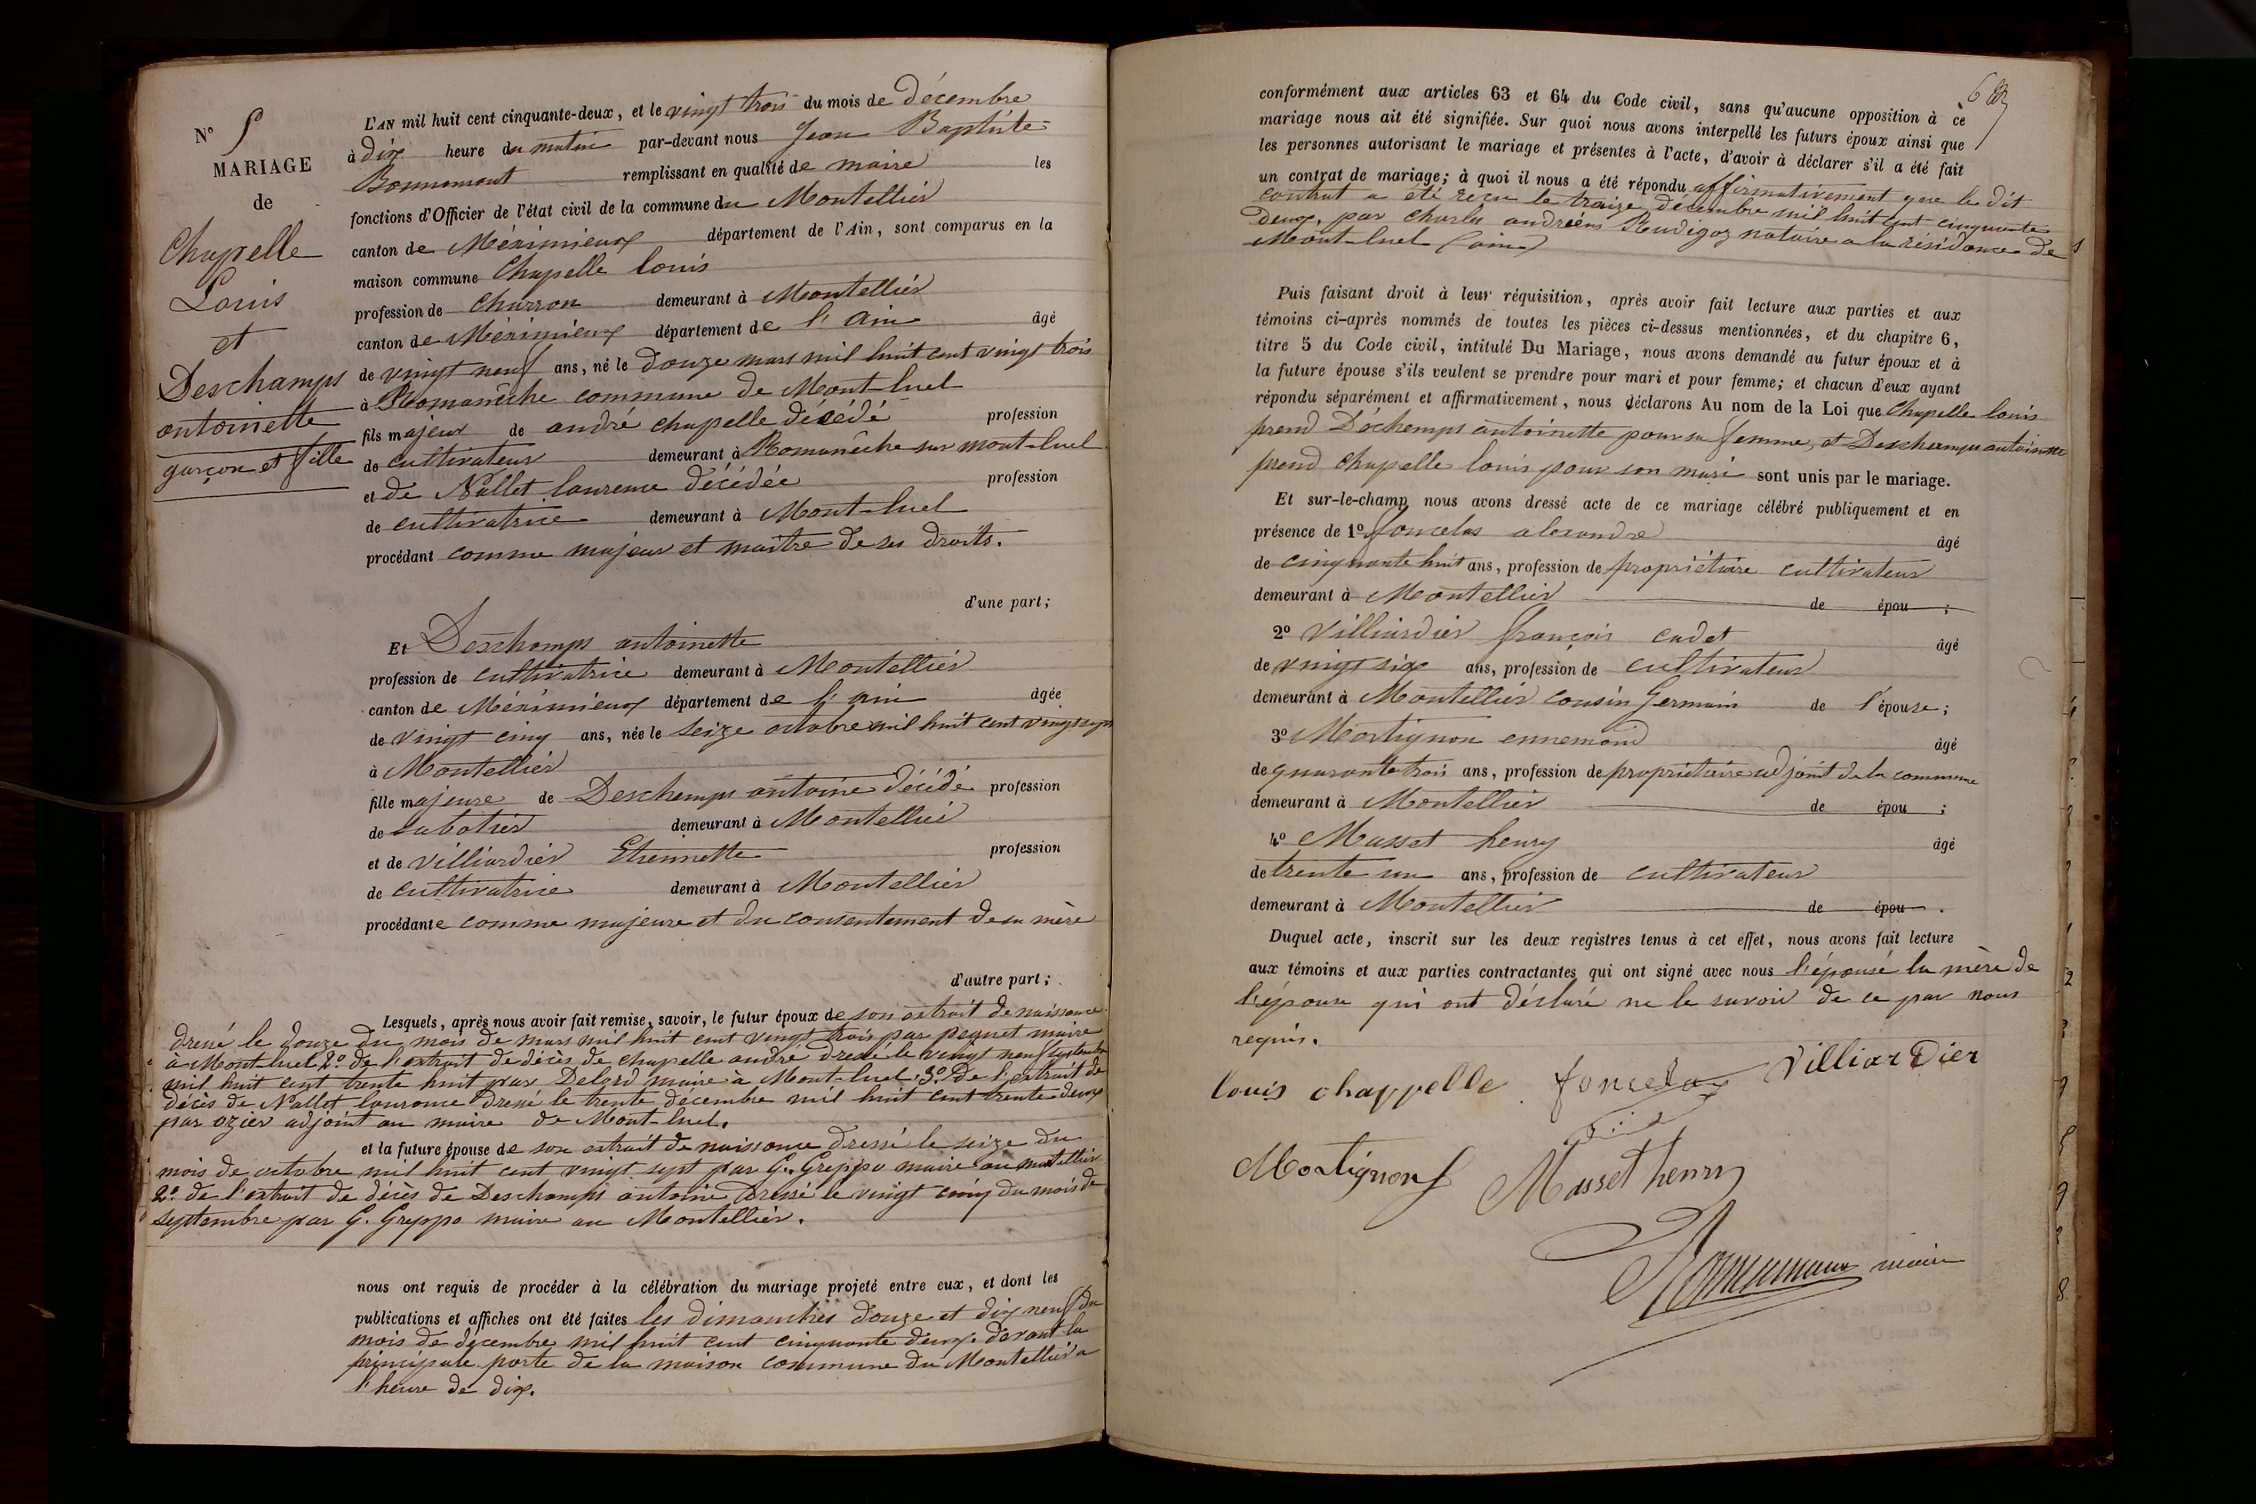 N° 5
MARIAGE
de
Chapelle
Louis
et
Deschamps
antoinette
garçon et fille
L'AN mil huit cent cinquante-deux, et le vingt trois du mois de décembre
à dix heure du matin par-devant nous Jean Baptiste
Bonnamant remplissant en qualité de maire les
fonctions d'Officier de l'état civil de la commune du Montellier
canton de Méximieux département de l'Ain, sont comparus en la
maison commune Chapelle louis
profession de charron demeurant à Montellier
canton de Méximieux département de l'ain âgé
de vingt neuf ans, né le douze mars mil huit cent vingt trois
à Romanèche commune de Mont-luel
fils majeur de andré chapelle décédé profession
de cultivateur demeurant à Romanèche sur mont-luel
et de Nallet laurence décédée profession
de cultivatrice demeurant à Mont-luel
procédant comme majeur et maitre de ses droits.
d'une part;
Et Deschamps antoinette
profession de cultivatrice demeurant à Montellier
canton de Méximieux département de l'ain âgée
de vingt cinq ans, née le seize octobre mil huit cent vingt sept
à Montellier
fille majeure de Deschamps antoine décédé profession
de sabotier demeurant à Montellier
et de villiardier Etiennette profession
de cultivatrice demeurant à Montellier
procédante comme majeure et du consentement de sa mère
d'autre part;
Lesquels, après nous avoir fait remise, savoir, le futur époux de son extrait de naissance
dressé le douze du mois de mars mil huit cent vingt trois par pequet maire
à Mont-luel 2° de l'extrait de décès de chapelle andré dressé le vingt neuf septembre
mil huit cent trente huit par Delord maire à Mont-luel. 3° De l'extrait de
décès de Nallet laurence dressé le trente decembre mil huit cent trente deux
par ozier adjoint au maire de Mont-luel.
et la future épouse de son extrait de naissance dressé le seize du
mois de octobre mil huit cent vingt sept par G. Greppo maire au montellier
2° de l'extrait de décès de Deschamps antoine dressé le vingt cinq du mois de
septembre par G. Greppo maire au Montellier.
nous ont requis de procéder à la célébration du mariage projeté entre eux, et dont les
publications et affiches ont été faites les dimanches douze et dix neuf du
mois de décembre mil huit cent cinquante deux devant la
principale porte de la maison commune du Montellier a
l'heure de dix.
conformément aux articles 63 et 64 du Code civil, sans qu'aucune opposition à ce
mariage nous ait été signifiée. Sur quoi nous avons interpellé les futurs époux ainsi que
les personnes autorisant le mariage et présentes à l'acte, d'avoir à déclarer s'il a été fait
un contrat de mariage; à quoi il nous a été répondu affirmativement que le dit
contrat a été reçu le traize décembre mil huit cent cinquante
deux, par charles andréens Rudigoz notaire a la résidence de
Mont-luel (ain)
Puis faisant droit à leur réquisition, après avoir fait lecture aux parties et aux
témoins ci-après nommés de toutes les pièces ci-dessus mentionnées, et du chapitre 6,
titre 5 du Code civil, intitulé Du Mariage, nous avons demandé au futur époux et à
la future épouse s'ils veulent se prendre pour mari et pour femme; et chacun d'eux ayant
répondu séparément et affirmativement, nous déclarons Au nom de la Loi que Chapelle louis
prend Déchamps antoinette pour sa femme, et Deschamps antoinette
prend chapelle louis pour son mari sont unis par le mariage.
Et sur-le-champ nous avons dressé acte de ce mariage célébré publiquement et en
présence de 1° foncelas alexandre âgé
de cinquante huit ans, profession de propriétaire cultivateur
demeurant à Montellier de épou ;
2° villiardier françois cadet âgé
de vingt six ans, profession de cultivateur
demeurant à Montellier cousin Germain de l'épouse;
3° Mortignon ennemond âgé
de quarante trois ans, profession de propriétaire adjoint de la commune
demeurant à Montellier de épou ;
4° Masset henry âgé
de trente un ans, profession de cultivateur
demeurant à Montellier de épou .
Duquel acte, inscrit sur les deux registres tenus à cet effet, nous avons fait lecture
aux témoins et aux parties contractantes qui ont signé avec nous l'épousé la mère de
l'épouse qui ont déclaré ne le savoir de ce par nous
requis.
louis chappelle foncelas villiardier
Mortignon Masset henry
Bonnamant maire